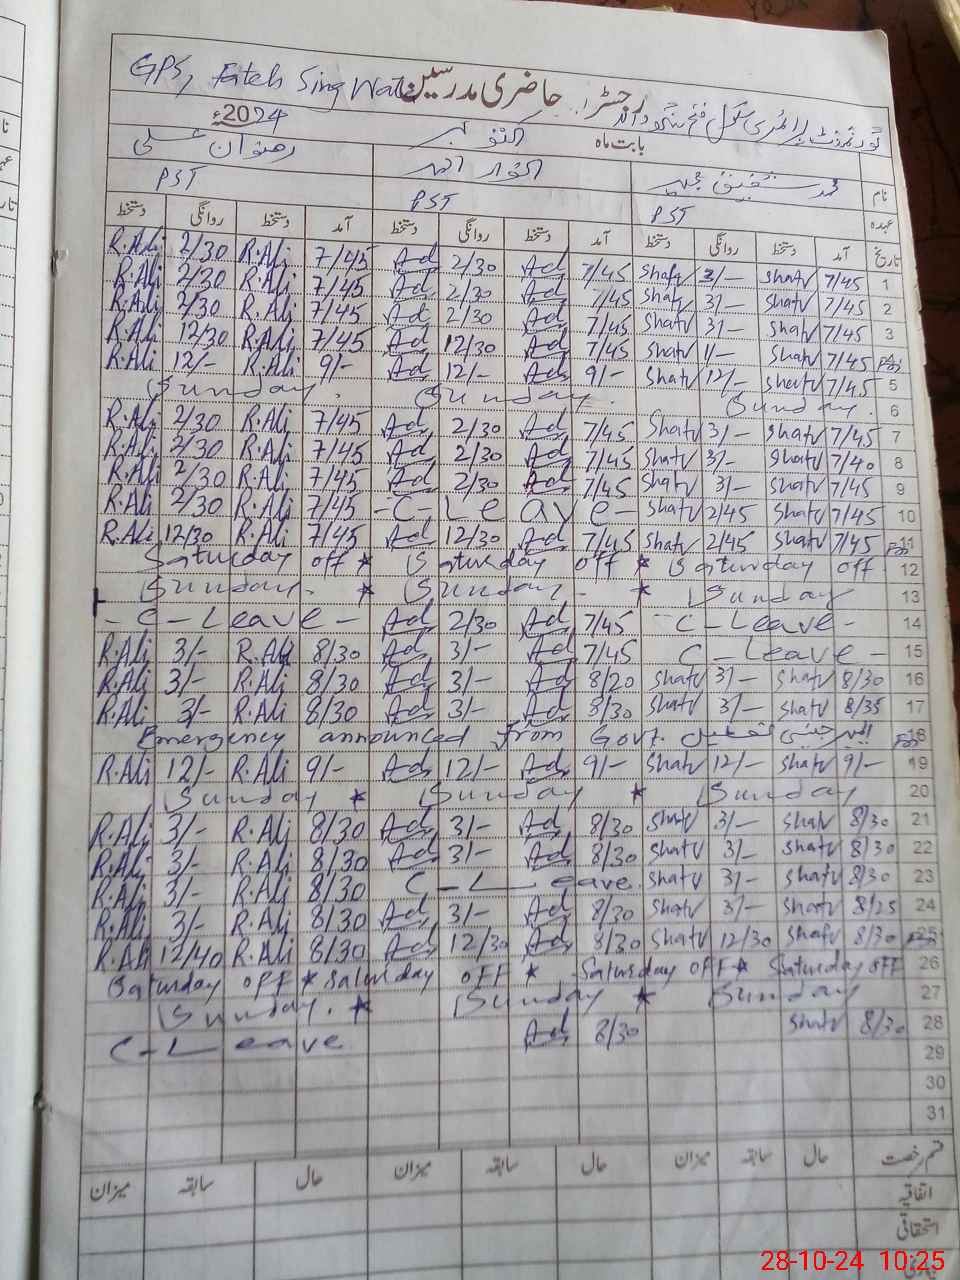 GPS, Fateh Sing Wala
رجسٹر حاضری مدرسین
گورنمنٹ پرائمری سکول فتح سنگھ والا
بابت ماہ اکتوبر 2024ء
نام محمد شفیق رضوان علی
عہدہ PST PST PST
تاریخ آمد دستخط روانگی دستخط آمد دستخط روانگی دستخط آمد دستخط روانگی دستخط
R.Ali 2/30 R.Ali 7/45 Ad 2/30 Ad 7/45 Shafv 3/- Shafv 7/45 1
R.Ali 2/30 R.Ali 7/45 Ad 2/30 Ad 7/45 Shafv 3/- Shafv 7/45 2
R.Ali 2/30 R.Ali 7/45 Ad 2/30 Ad 7/45 Shafv 3/- Shafv 7/45 3
R.Ali 12/30 R.Ali 7/45 Ad 12/30 Ad 7/45 Shafv 1/- Shafv 7/45
R.Ali 12/- R.Ali 9/- Ad 12/- Ad 9/- Shafv 12/- Shafv 7/45 5
Sunday. Sunday. Sunday. 6
R.Ali 2/30 R.Ali 7/45 Ad 2/30 Ad 7/45 Shafv 3/- Shafv 7/45 7
R.Ali 2/30 R.Ali 7/45 Ad 2/30 Ad 7/45 Shafv 3/- Shafv 7/40 8
R.Ali 2/30 R.Ali 7/45 Ad 2/30 Ad 7/45 Shafv 3/- Shafv 7/45 9
R.Ali 2/30 R.Ali 7/45 -C-Leave- Shafv 2/45 Shafv 7/45 10
R.Ali 12/30 R.Ali 7/45 Ad 12/30 Ad 7/45 Shafv 2/45 Shafv 7/45 11
Saturday off * Saturday off * Saturday off 12
Sunday - * Sunday - * Sunday 13
- C-Leave - Ad 2/30 Ad 7/45 - C-Leave - 14
R.Ali 3/- R.Ali 8/30 Ad 3/- Ad 7/45 C-Leave - 15
R.Ali 3/- R.Ali 8/30 Ad 3/- Ad 8/20 Shafv 3/- Shafv 8/30 16
R.Ali 3/- R.Ali 8/30 Ad 3/- Ad 8/30 Shafv 3/- Shafv 8/35 17
Emergency announced from Govt. ایمرجنسی تعطیل 18
R.Ali 12/- R.Ali 9/- Ad 12/- Ad 9/- Shafv 12/- Shafv 9/- 19
Sunday * Sunday * Sunday 20
R.Ali 3/- R.Ali 8/30 Ad 3/- Ad 8/30 Shafv 3/- Shafv 8/30 21
R.Ali 3/- R.Ali 8/30 Ad 3/- Ad 8/30 Shafv 3/- Shafv 8/30 22
R.Ali 3/- R.Ali 8/30 C-Leave. Shafv 3/- Shafv 8/30 23
R.Ali 3/- R.Ali 8/30 Ad 3/- Ad 8/30 Shafv 3/- Shafv 8/25 24
R.Ali 12/40 R.Ali 8/30 Ad 12/30 Ad 8/30 Shafv 12/30 Shafv 8/30 25
Saturday off * Saturday off * Saturday off * Saturday off 26
Sunday. * Sunday * Sunday 27
C-Leave Ad 8/30 Shafv 8/30 28
29
30
31
قسم رخصت حال سابقہ میزان حال سابقہ میزان حال سابقہ میزان
اتفاقیہ
استحقاقی
28-10-24 10:25